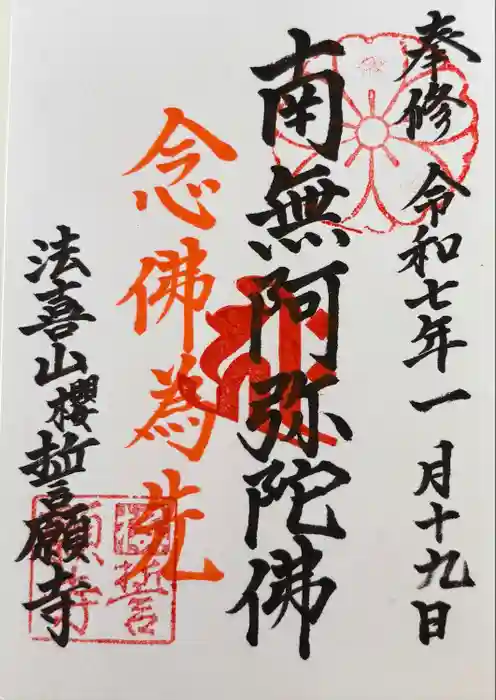 奉修 令和七年一月十九日
南無阿弥陀佛
念佛為先
法喜山櫻誓願寺